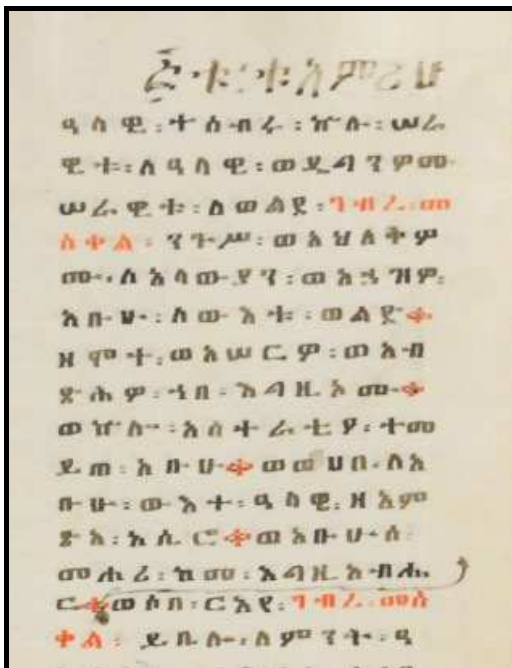 ዓላዊ፡ተሰብሩ፡ኵሉ፡ሠራ
ዊቱ፡ለዓላዊ፡ወዴገንዎሙ
ሠራዊቱ፡ለወልደ፡ገብረ፡መ
ስቀል፡ንጉሥ፡ወአህለቅዎ
ሙ፡ለእላውያን፡ወአኀዝዎ፡
አቡሁ፡ለውእቱ፡ወልድ።
ዘሞተ፡ወአሠርዎ፡ወአብ
ጽሕዎ፡ኀበ፡እግዚኦሙ።
ወኵሉ፡አስተራትዖ፡ተመ
ይጠ፡አቡሁ።ወወሀበ፡ለአ
ቡሁ፡ውእተ፡ዓላዊ፡ዘአም
ጽአ፡አሲሮ።ወአቡሁ፡ሰ
መሐሪ፡ከመ፡እግዚአብሔ
ር።ወሶበ፡ርእየ፡ገብረ፡መስ
ቀል፡ይቤሎ፡ለምንት፡ዓ